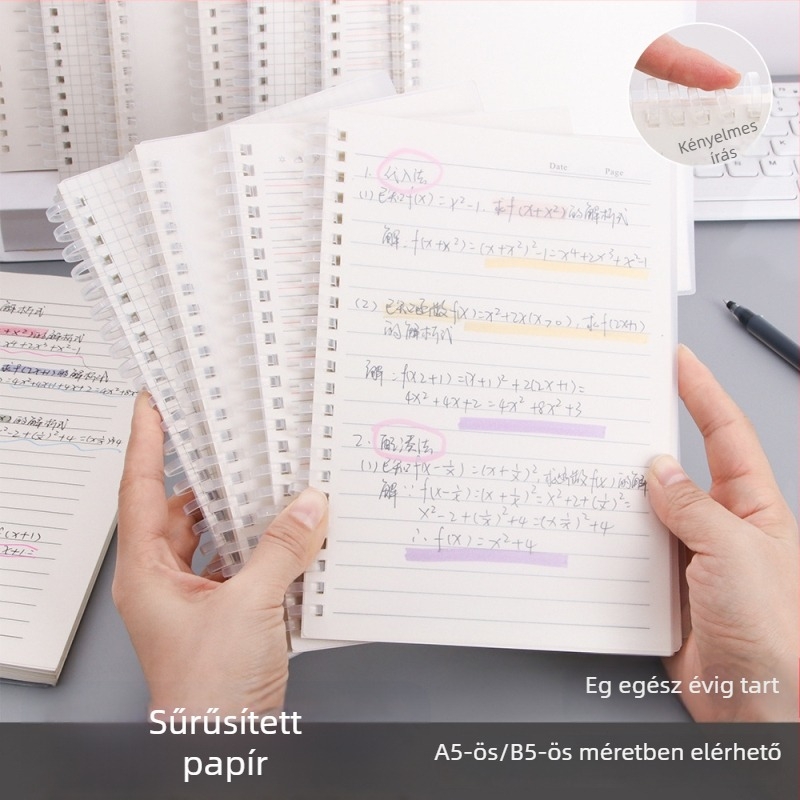 Kényelmes
írás
Date
Page
1. 代入法
(1) 已知f(x)=x²-1, 求f(x+x²)的解析式
解: f(x+x²)=(x+x²)²-1=x⁴+2x³+x²-1
(2) 已知函数f(x)=x²+2x(x>0), 求f(2x+1)
的解析式
解: f(2x+1)=(x+1)²+2(2x+1)=
4x²+4x+2=4x²+8x²+3
2. 配凑法
(1) 已知f(x-1/x)=(x+1/x)², 求函数f(x)的解
解: f(x-1/x)=(x+1/x)²=x²+2+(1/x)²=
x²-2+(1/x)²+4=(x 1/x)²+4
∴ f(x)=x²+4
解析式
的解析式
f(x+1)
Eg egész évig tart
Sűrűsített
papír
A5-ös/B5-ös méretben elérhető